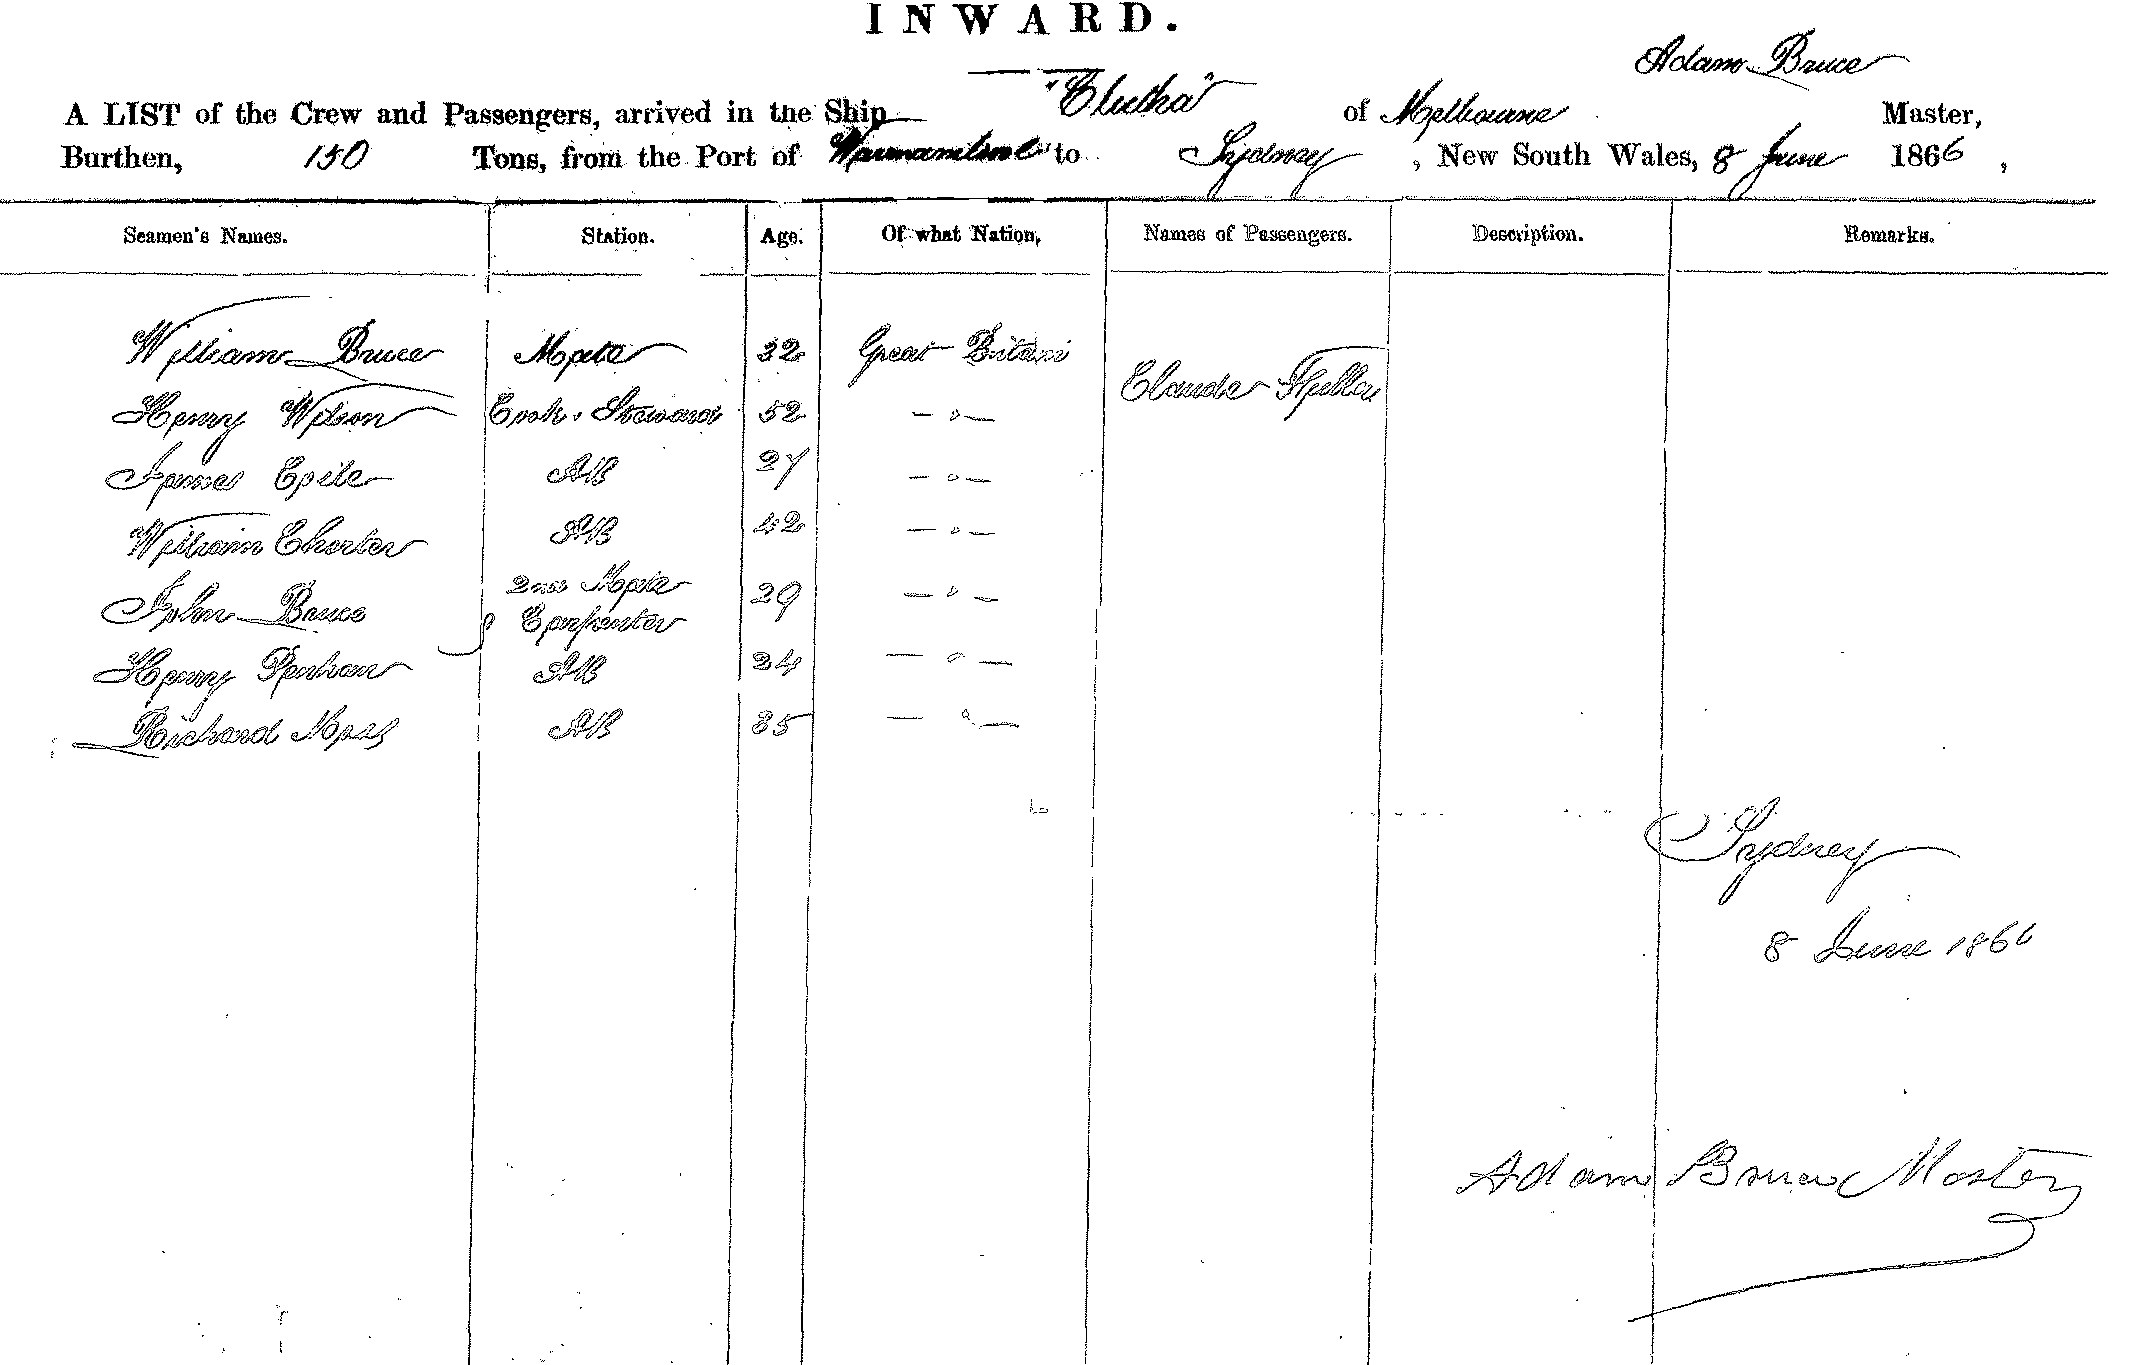 INWARD.
Adam Bruce
A LIST of the Crew and Passengers, arrived in the Ship "Clutha" of Melbourne Master,
Burthen, 150 Tons, from the Port of to Sydney, New South Wales, 8 June 1866,
Seamen's Names. Station. Age. Of what Nation, Names of Passengers. Description. Remarks.
William Bruce Mate 32 Great Britain
Claude
Henry Wilson Cook & Steward 52 - " -
James 27 - " -
AB
William Charter AB 42 - " -
John Bruce 2nd Mate 29 - " -
Carpenter
Henry AB 24 - " -
Richard AB 35 - " -
Sydney
8 June 1866
Adam Bruce Master